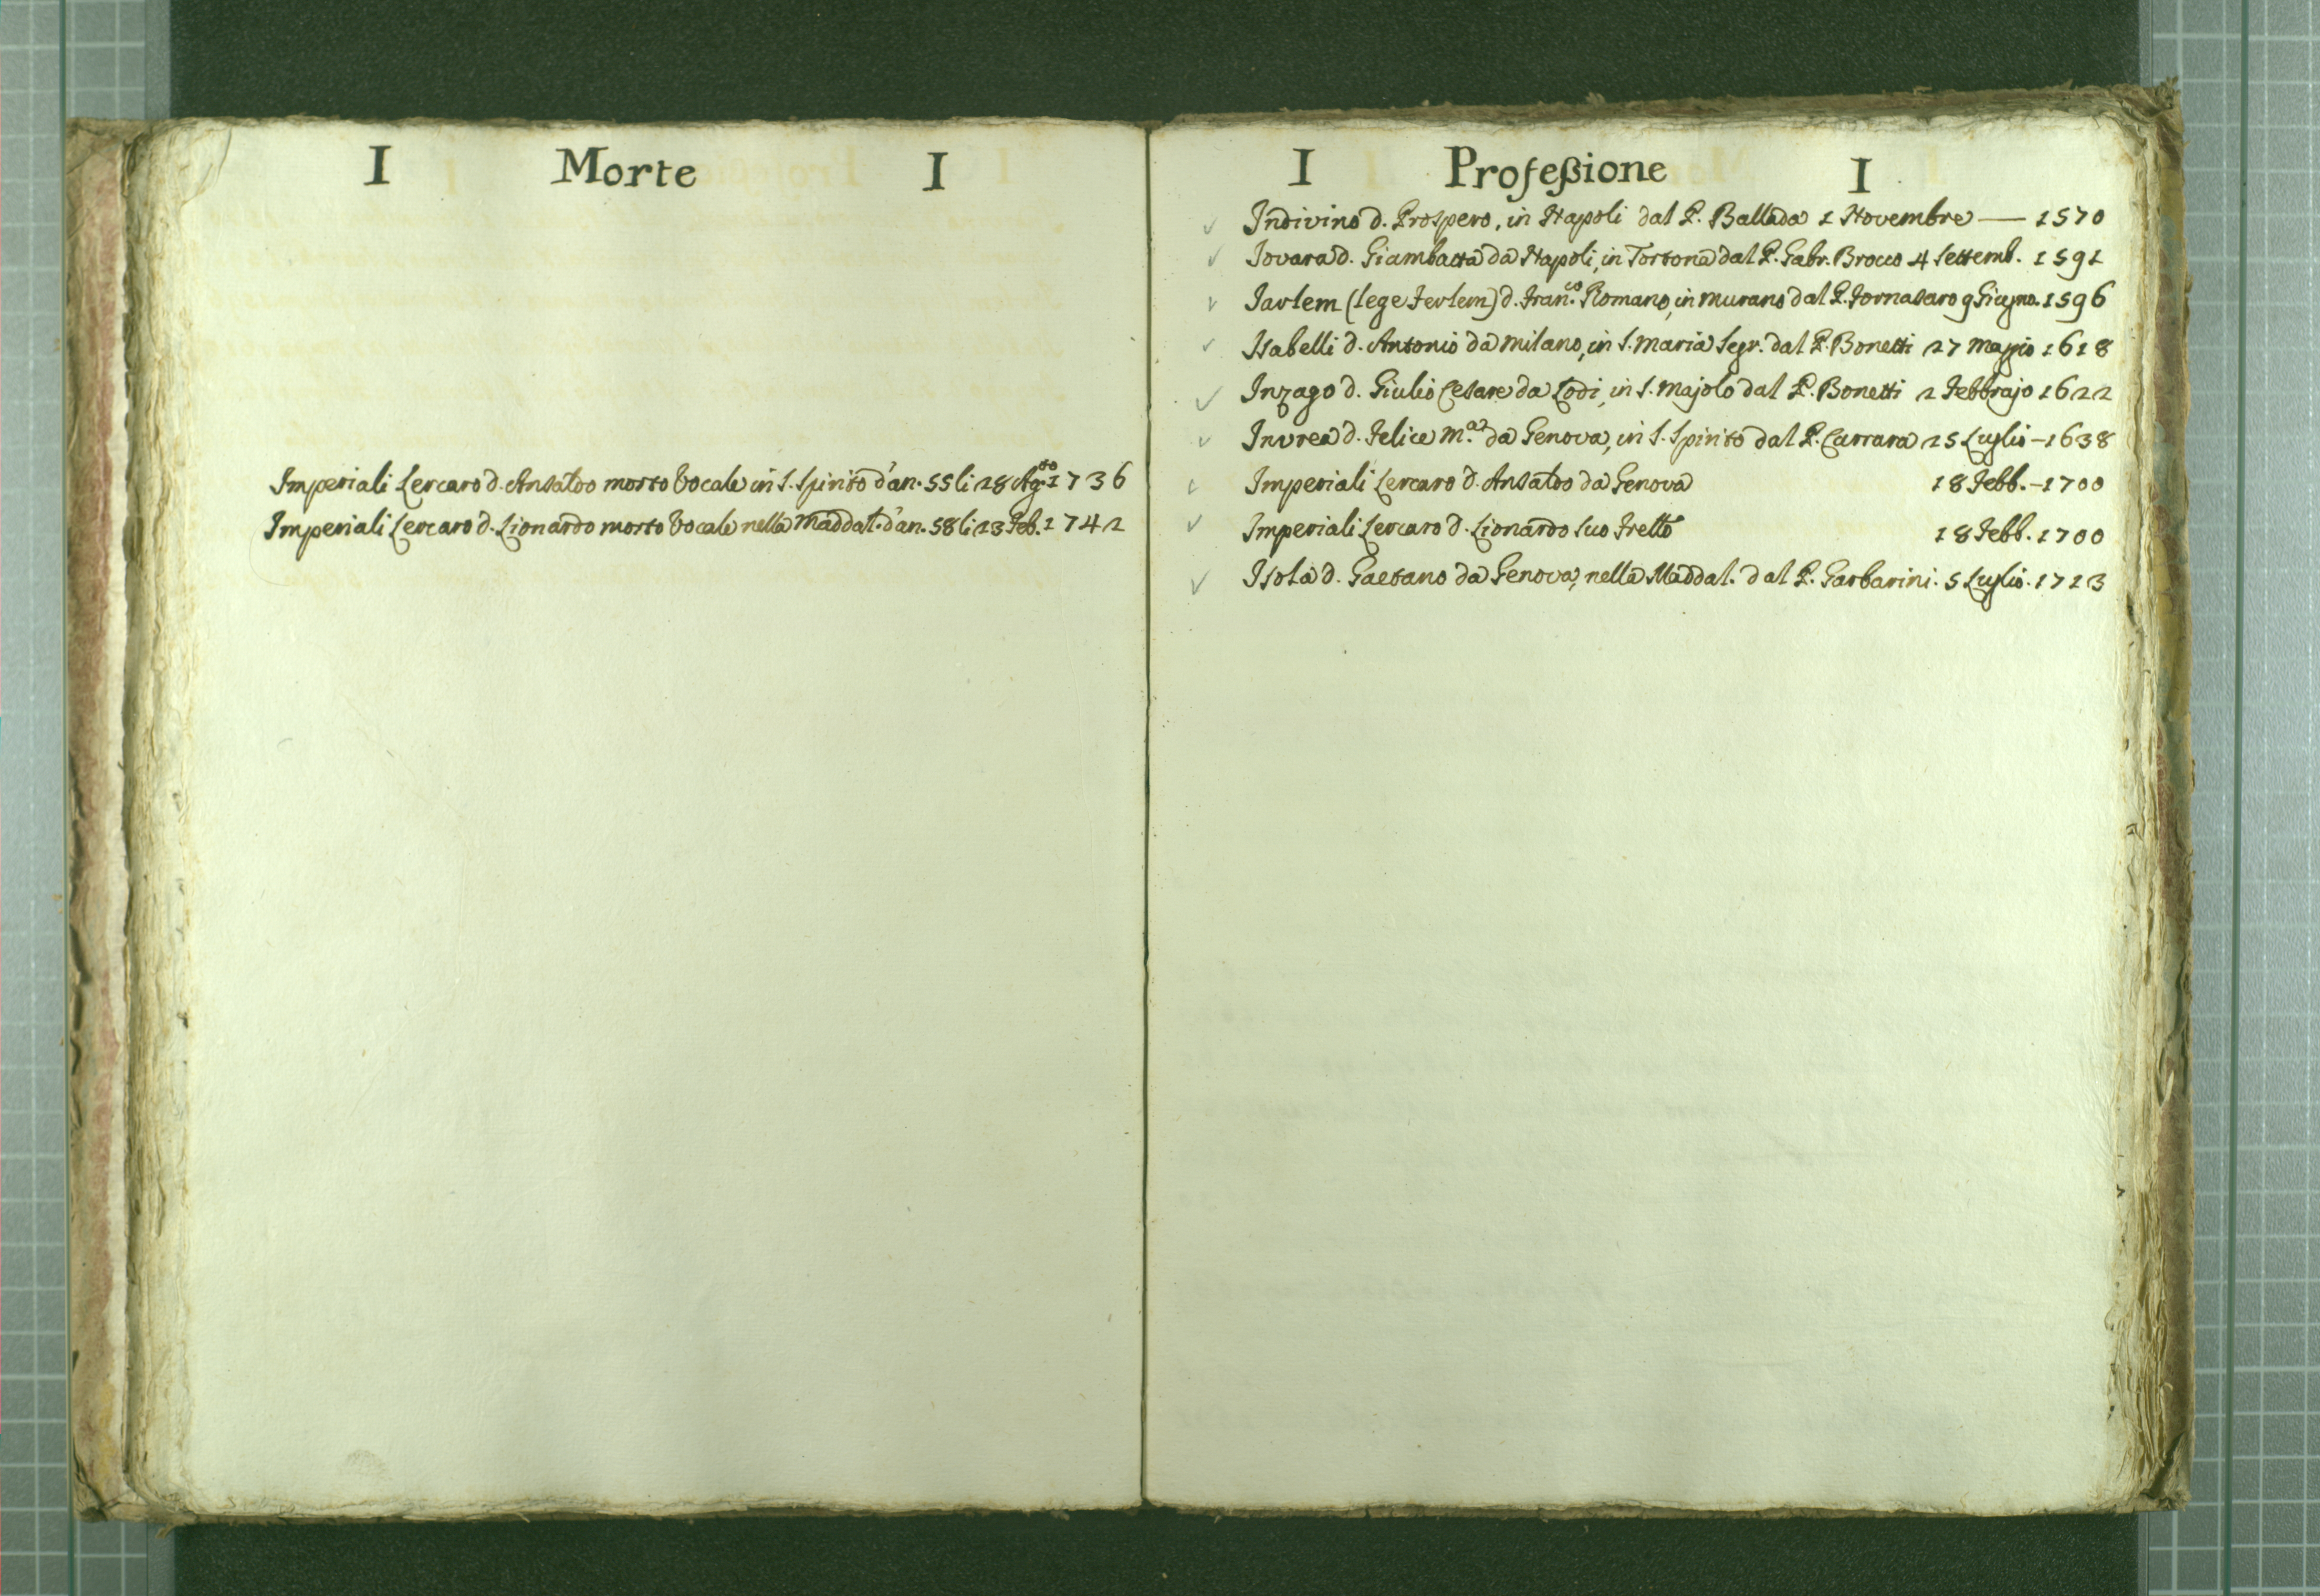 I Morte I
Imperiali Lercaro d. Ansaldo morto Vocale in S. Spirito d'an. 55 li 28 Ag.to 1736
Imperiali Lercaro d. Lionardo morto Vocale nella Maddal. d'an. 58 li 23 Feb. 1742
I Profeßione I
Indivino d. Prospero, in Napoli dal P. Ballada 1 Novembre — 1570
Iovara d. Giambatta da Napoli, in Tortona dal P. Gabr. Brocco 4 Settemb. 1591
Iavlem (lege Ievlem) d. Fran.co Romano, in Murano dal P. Fornasaro 9 Giugno. 1596
Isabelli d. Antonio da Milano, in S. Maria Segr. dal P. Bonetti 27 Maggio 1618
Inzago d. Giulio Cesare da Lodi, in S. Majolo dal P. Bonetti 2 Febbrajo 1622
Invrea d. Felice M.a da Genova, in S. Spirito dal P. Carrara 25 Luglio - 1638
Imperiali Lercaro d. Ansaldo da Genova 18 Febb. - 1700
Imperiali Lercaro d. Lionardo suo Frello 18 Febb. 1700
Isola d. Gaetano da Genova, nella Maddal. dal P. Garbarini. 5 Luglio. 1713